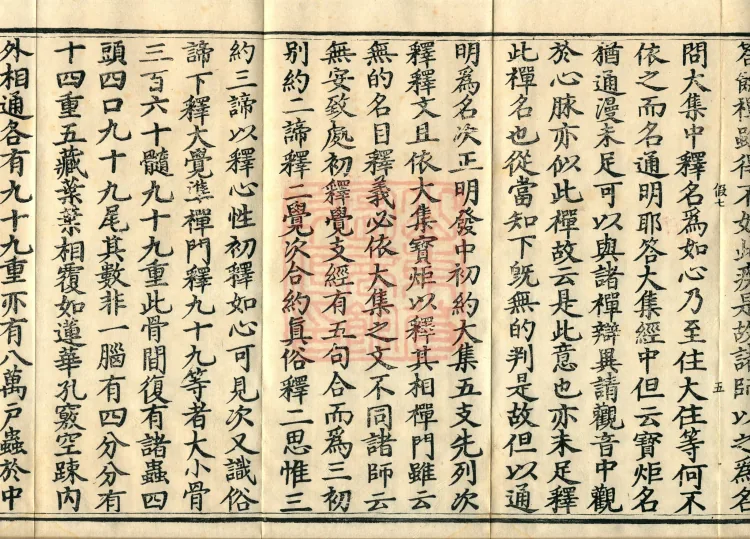 禪雖得不如此是故諸師以之爲名
假七 五
問大集中釋名爲如心乃至住大住等何不
依之而名通明耶答大集經中但云寶炬名
猶通漫未足可以與諸禪辯異請觀音中觀
於心脉亦似此禪故云是此意也亦未足釋
此禪名也從當知下旣無的判是故但以通
明爲名次正明發中初約大集五支先列次
釋釋文且依大集寶炬以釋其相禪門雖云
無的名目釋義必依大集之文不同諸師云
無安致處初釋覺支經有五句合而爲三初
別約二諦釋二覺次合約眞俗釋二思惟三
約三諦以釋心性初釋如心可見次又識俗
諦下釋大覺準禪門釋九十九等者大小骨
三百六十髓九十九重此骨間復有諸蟲四
頭四口九十九尾其數非一腦有四分分有
十四重五藏葉葉相覆如蓮華孔竅空踈内
外相通各有九十九重亦有八萬戶蟲於中